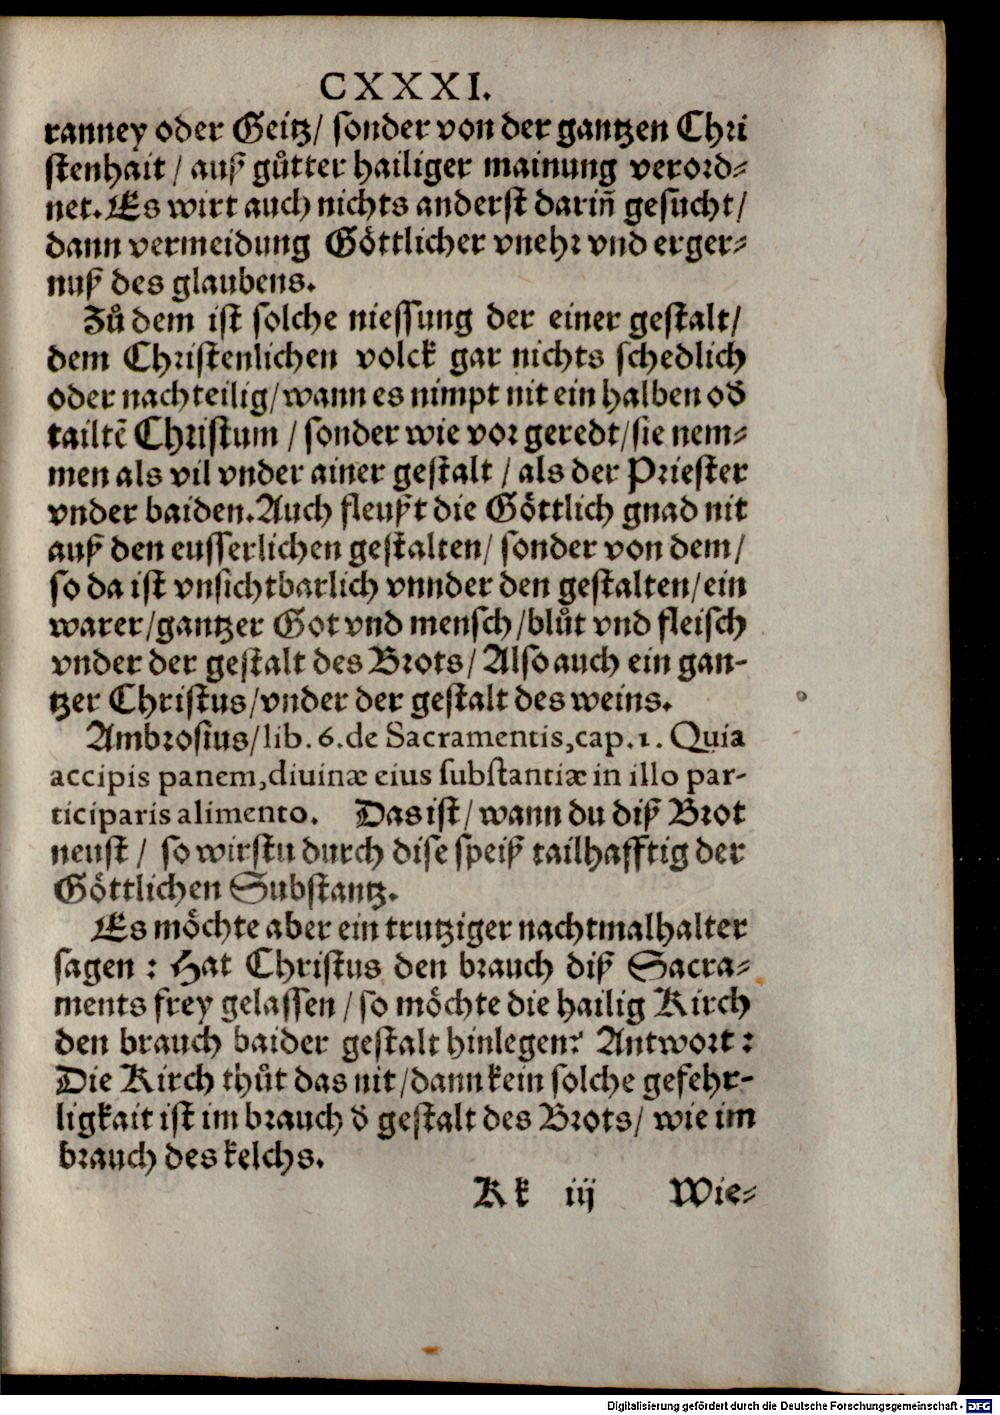 CXXXI.
ranney oder Geitz/ sonder von der gantzen Chri
stenhait / auß gůtter hailiger mainung verord⸗
net. Es wirt auch nichts anderst dariñ gesucht/
dann vermeidung Göttlicher vnehr vnd erger⸗
nuß des glaubens.
Zů dem ist solche niessung der einer gestalt/
dem Christenlichen volck gar nichts schedlich
oder nachteilig/ wann es nimpt nit ein halben od̕
tailtē Christum / sonder wie vor geredt/ sie nem⸗
men als vil vnder ainer gestalt / als der Priester
vnder baiden. Auch fleußt die Göttlich gnad nit
auß den eusserlichen gestalten/ sonder von dem/
so da ist vnsichtbarlich vnnder den gestalten/ ein
warer/ gantzer Got vnd mensch/ blůt vnd fleisch
vnder der gestalt des Brots/ Also auch ein gan-
tzer Christus/ vnder der gestalt des weins.
Ambrosius/ lib. 6. de Sacramentis, cap. 1. Quia
accipis panem, diuinæ eius substantiæ in illo par-
ticiparis alimento. Das ist/ wann du diß Brot
neust / so wirstu durch dise speiß tailhafftig der
Göttlichen Substantz.
Es möchte aber ein trutziger nachtmalhalter
sagen : Hat Christus den brauch diß Sacra⸗
ments frey gelassen / so möchte die hailig Kirch
den brauch baider gestalt hinlegen? Antwort :
Die Kirch thůt das nit/ dann kein solche gefehr-
ligkait ist im brauch d̕ gestalt des Brots/ wie im
brauch des kelchs.
Kk iij Wie⸗
Digitalisierung gefördert durch die Deutsche Forschungsgemeinschaft - DFG